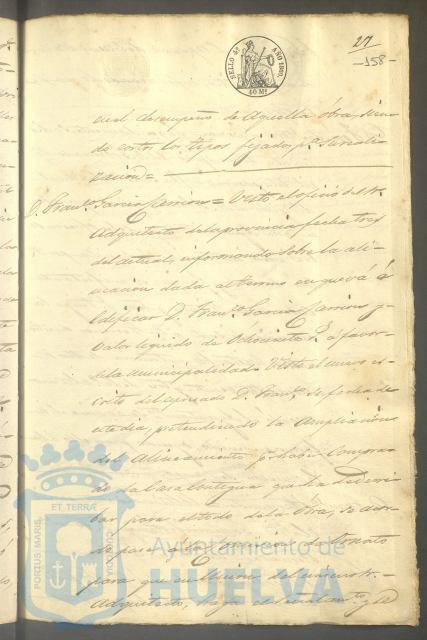 27
-158-
SELLO 4º AÑO 1861
40 Ms
en el desempeño de aquella obra, sien-
do cortos los tipos fijados pª su reali-
zacion =
D. Franco Garcia Carrion = Visto el oficio del Sr.
Arquitecto de la provincia fecha tres
del actual, informando sobre la ali-
neacion dada al terreno en que vá á
edificar D. Franco Garcia Carrion y
valor liquido de á favor
de la municipalidad = Visto el nuevo es-
crito del espresado D. Franco de fecha de
este dia, pretendiendo la ampliacion
del alineamiento pr haber compra-
do la casa contigua que ha de derri-
bar para el todo de la obra, se acor-
dó pase á la Comision de Ornato
para que en union del mismo Sr.
Arquitecto, haga el señalamto y se
PORTUS MARIS ET TERRÆ CUSTODIA
Ayuntamiento de
HUELVA